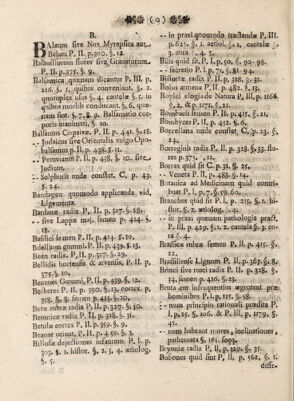 (9)
B.
Balanus sive Nux Myrepsica aut
Behen P. II. p. 300. §. 12.
Balaustiorum flores sive Granatorum
P. II. p. 371. §. 9.
Balsamica quænam dicantur P. III. p.
216. §. 1. quibus conveniant. §. 2.
quotuplex usus §. 4. cautele §. 5. in
quibus morbis conducant. §. 6. quæ-
nam sint. §. 7. 8. 9. Balsamatio cor-
poris inanimis. §. 10.
Balsamus Copaivæ. P. II. p. 441. §. 18.
-- Judaicus sive Orientalis vulgo Opo-
balsamum P. II. p. 438. §. 11.
-- Peruvianus P. II. p. 438. §. 10. sive
Judicus.
-- Sulphuris unde constet. C. p. 43.
§. 24.
Bandages quomodo applicanda vid.
Ligamenta.
Bardanæ radix P. II. p. 327. §. 28.
-- sive Lappæ maj. semen p. 414. §.
18.
Basilici semen P. II. p. 414. §. 19.
Bdellium gummi. P. II. p. 439. §. 13.
Been radix. P. II. p. 327. §. 29.
Bellidis hortensis & arvensis, P. II. p.
375. §. 10.
Benzoes Gummi, P. II. p. 439. §. 12.
Berberes P. II. p. 390. §. 13. cortex. p.
358. §. 8. semen p. 415. §. 20.
Bete rubræ radix P. II. p. 327. §. 30.
Betonicæ radix P. II. p. 328. §. 31.
Betulæ cortex P. II. p. 359. §. 9.
Bezoar orient. P. II. p. 459. §. 3.
Biliosæ dejectiones infantum. P. I. p.
303. §. 1. histor. §. 2. 3. 4. ætiolog.
§. 5.
-- in praxi quomodo tractandæ P. III.
p. 625. §. 1. ætiol. §. 2. cautelæ
§. 3. cura. §. 7.
Bilis quid sit P. I. p. 50. §. 90. 98.
-- secretio P. I. p. 71. §. 81. 94.
Bistortæ radix P. II. p. 328. §. 32.
Bolus armena P. II. p. 482. §. 13.
Boylei elogia de Natura P. III. p. 1166.
§. 2. & p. 1171. §. 21.
Bombacis semen P. II. p. 415. §. 21.
Bombyces P. II. p. 422. §. 6.
Borcellana unde constet, C. p. 23. §.
24.
Borraginis radix P. II. p. 328. §. 33. flo-
res p 375. §. 12.
Borrax quid sit C. p. 31. §. 25.
-- Veneta P. II. p. 483. §. 14.
Botanica ad Medicinam quid contri-
buat P. I. p. 7. §. 59. 60.
Branchus quid sit P. I. p. 215. §. 1. hi-
stor. §. 2. ætiolog. §. 5.
-- in praxi quænam pathologia pract.
P. III. p. 429. §. 1. 2. cautela §. 3. cu-
ra §. 4.
Brassicæ rubræ semen P. II. p. 415. §.
22.
Brasiliense Lignum P. II. p. 367. §. 8.
Brusci sive rusci radix P. II. p. 328. §.
34. semen p. 416. §. 23.
Bruta cur infrequentius ægrotent præ
hominibus P. I. p. 115. §. 58.
-- num principio rationali prædita P.
I. p. 25. §. 206. & P. III. p. 1179.
§. 45.
-- num habeant mores, inclinationes,
pathemata §. 161. seqq.
Bryoniæ radix P. II. p. 329. §. 35.
Bubones quid sint P. II. p. 562. §. 1.
diffe-